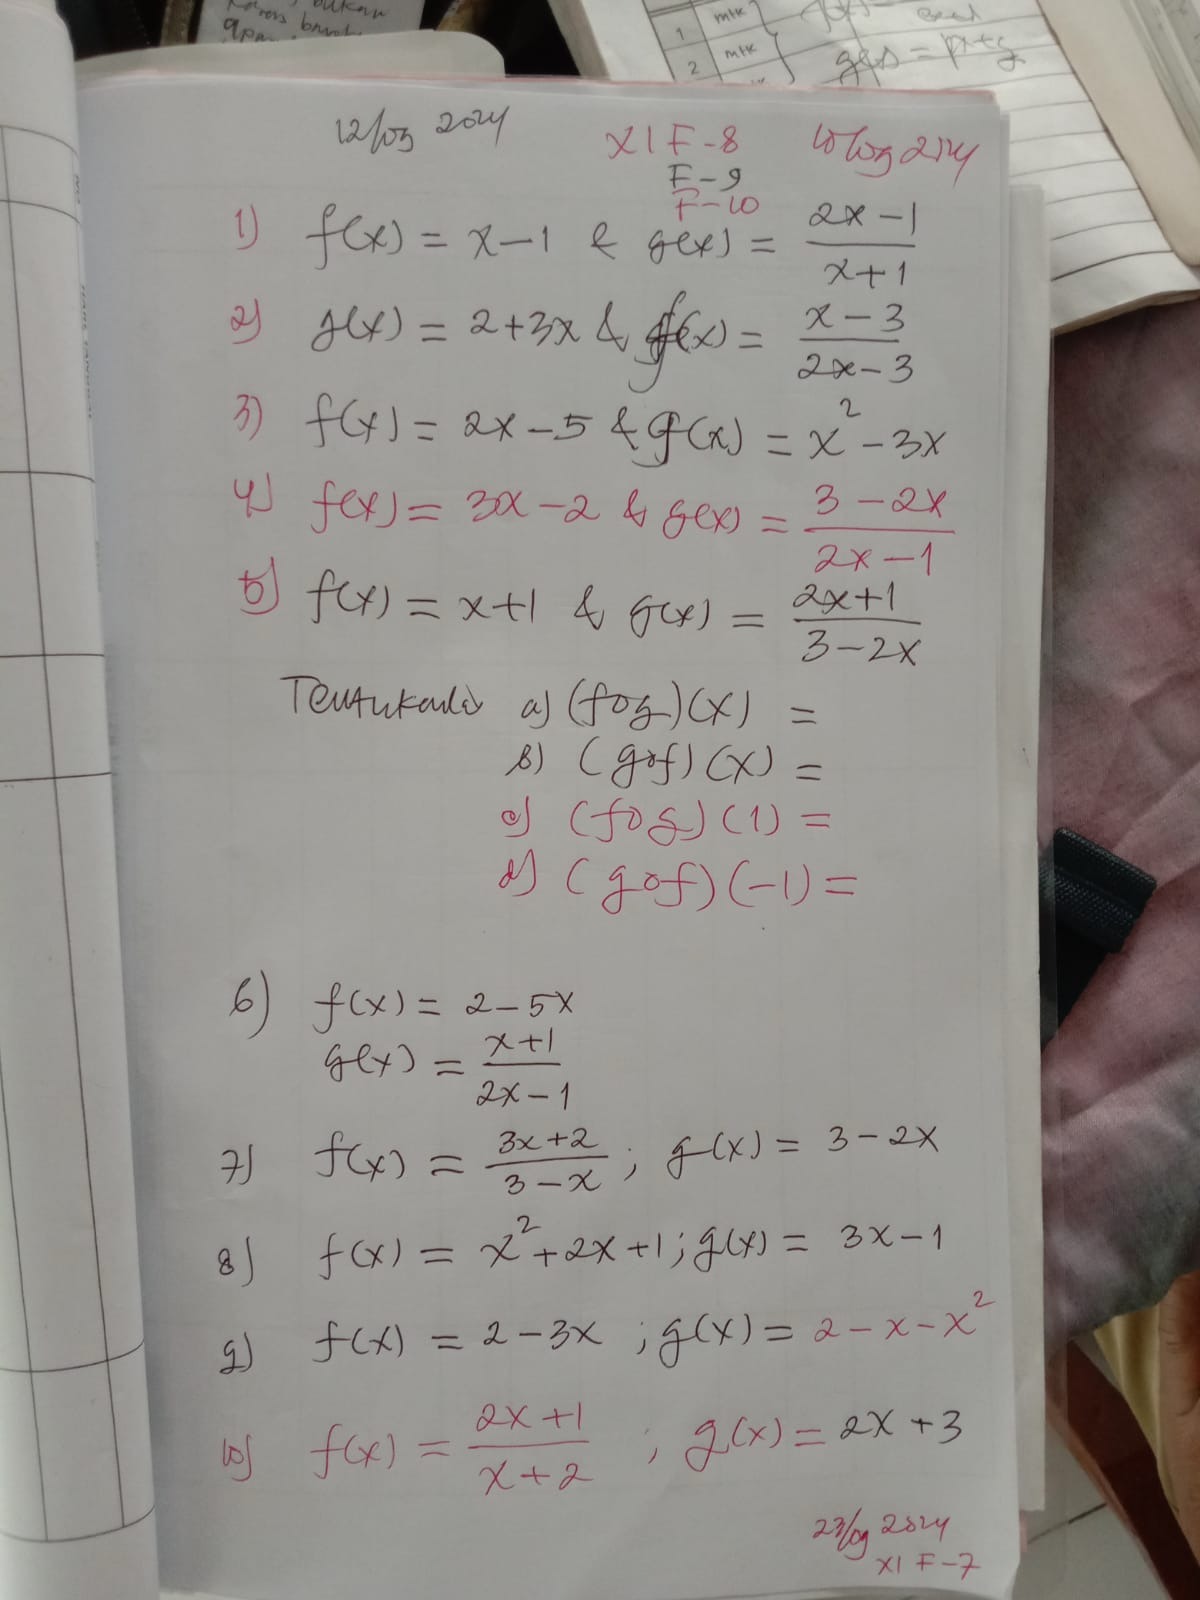 bukan
1 mtk
2 mtk
12/09 2024 XI F-8 10/09 2024
F-9
F-10
1) f(x) = x-1 & g(x) = (2x-1)/(x+1)
2) g(x) = 2+3x & f(x) = (x-3)/(2x-3)
3) f(x) = 2x-5 & g(x) = x²-3x
4) f(x) = 3x-2 & g(x) = (3-2x)/(2x-1)
5) f(x) = x+1 & g(x) = (2x+1)/(3-2x)
Tentukanlah a) (fog)(x) =
b) (gof)(x) =
c) (fog)(1) =
d) (gof)(-1) =
6) f(x) = 2-5x
g(x) = (x+1)/(2x-1)
7) f(x) = (3x+2)/(3-x) ; g(x) = 3-2x
8) f(x) = x²+2x+1 ; g(x) = 3x-1
9) f(x) = 2-3x ; g(x) = 2-x-x²
10) f(x) = (2x+1)/(x+2) ; g(x) = 2x+3
23/09 2024
XI F-7